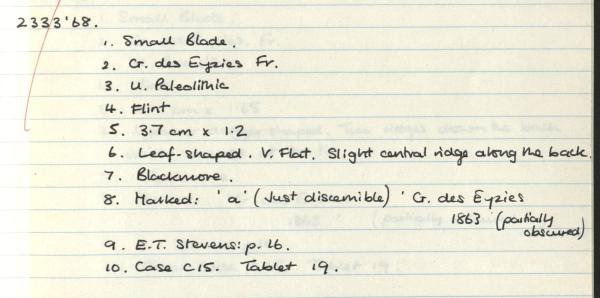 2333'68.
1. Small Blade.
2. Gr. des Eyzies Fr.
3. U. Paleolithic
4. Flint
5. 3.7 cm x 1.2
6. Leaf-shaped. V. Flat. Slight central ridge along the back.
7. Blackmore.
8. Marked: 'a' (Just discernible) 'Gr. des Eyzies
1863' (partially
obscured)
9. E.T. Stevens: p. 16.
10. Case C15. Tablet 19.